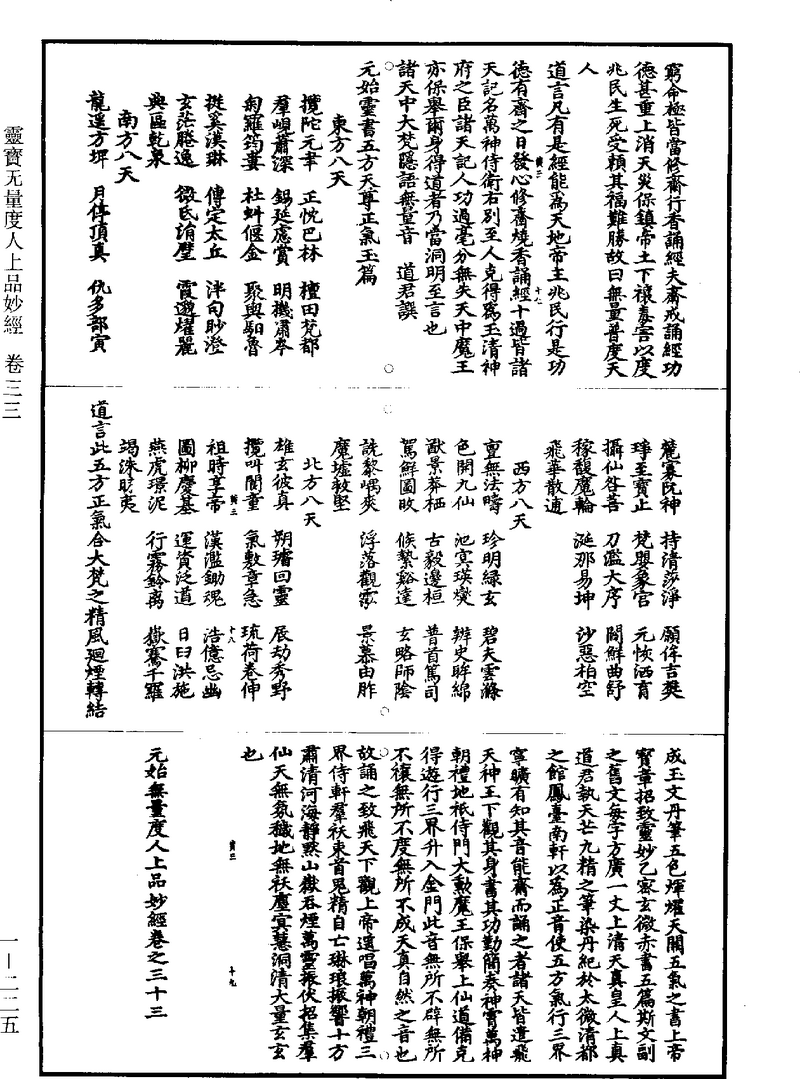 靈寶无量度人上品妙經　卷三三
一—二二五
窮命極皆當修齋行香誦經夫齋戒誦經功
德甚重上消天災保鎮帝王下禳毒害以度
兆民生死受賴其福難勝故曰無量普度天
人
道言凡有是經能爲天地帝主兆民行是功
德有齋之日發心修齋燒香誦經十過皆諸
天記名萬神侍衛右別至人克得爲玉清神
府之臣諸天記人功過毫分無失天中魔王
亦保舉爾身得道者乃當洞明至言也
諸天中大梵隱語無量音　道君譔
元始靈書五方天尊正氣玉篇
東方八天
攬陀元聿　正忱巴林　檀田梵都
羣峴蕭深　錫延慮賞　明櫢瀟岑
匈羅筠婁　杜蚪偃金　聚輿馹魯
挺奚漢琳　傳定太丘　泮旬眇澄
玄茫賸逸　微氐詴墍　霞邀燿麗
輿區乾泉
南方八天
龍遥方坪　月停頂真　仇多部寅
麓寡阮神　持清莎淨　願侔吉樊
琤至寶止　梵嬰象宮　元恢洒育
攝仙咎菩　刀濫大序　閻鮮曲舒
稼馥魔輪　涎那易坤　沙惡柏空
飛華散逋
西方八天
亶無法疇　珍明緑玄　碧夫雲滌
色開九仙　池寞瑛爕　辦史眸綿
猷景莽栖　古毅邊桓　普首篤司
駕鮮圖旼　候縶谿達　玄略師陰
詵黎嵎爽　浮落觀霶　景慕由胙
魔墟敖堅
北方八天
雄玄彼真　朔璿回靈　辰劫秀野
攬叫閬童　氣敷章急　琉荷卷伸
祖時享帝　漢濫鋤琨　浩億忌幽
圖柳慶基　運資泛道　日日洪施
燕虎璟泥　行霧鈴禹　嶽騫千羅
竭洙眩夷
道言此五方正氣合大梵之精風廻煙轉結
成玉文丹筆五色煇耀天關五氣之書上帝
寶章招致靈妙乙密玄微赤書五篇斯文副
之舊文每字方廣一丈上清天真皇人上真
道君執天芒九精之筆染丹紀於太微清都
之館鳳臺南軒以爲正音使五方氣行三界
寧曠有知其音能齋而誦之者諸天皆遣飛
天神王下觀其身書其功勤簡奏神霄萬神
朝禮地祇侍門大勲魔王保舉上仙道備克
得遊行三界升入金門此音無所不辟無所
不禳無所不度無所不成天真自然之音也
故誦之致飛天下觀上帝遺唱萬神朝禮三
界侍軒羣祆束首鬼精自亡琳琅振響十方
肅清河海靜默山嶽吞煙萬靈振伏招集羣
仙天無氛穢地無祆塵冥慧洞清大量玄玄
也
元始無量度人上品妙經卷之三十三